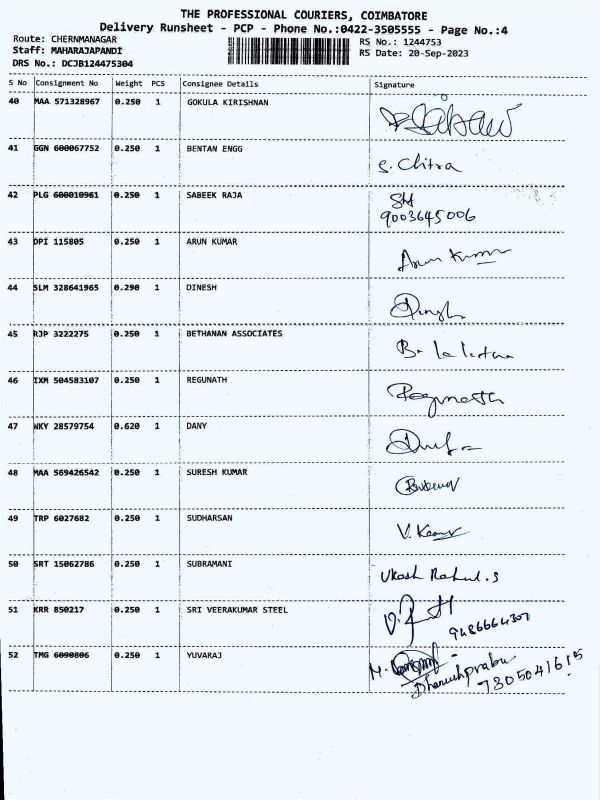 THE PROFESSIONAL COURIERS, COIMBATORE
Delivery Runsheet - PCP - Phone No.:0422-3505555 - Page No.:4
Route: CHERNMANAGAR RS No.: 1244753
Staff: MAHARAJAPANDI RS Date: 20-Sep-2023
DRS No.: DCJB124475304
S No Consignment No Weight PCS Consignee Details Signature
40 MAA 571328967 0.250 1 GOKULA KIRISHNAN
41 GGN 600067752 0.250 1 BENTAN ENGG S. Chitra
42 PLG 600010961 0.250 1 SABEEK RAJA
9003645006
43 DPI 115805 0.250 1 ARUN KUMAR Arun Kumar
44 SLM 328641965 0.290 1 DINESH
45 RJP 3222275 0.250 1 BETHANAN ASSOCIATES
46 IXM 504583107 0.250 1 REGUNATH Regunath
47 WKY 28579754 0.620 1 DANY
48 MAA 569426542 0.250 1 SURESH KUMAR
49 TRP 6027682 0.250 1 SUDHARSAN
50 SRT 15062786 0.250 1 SUBRAMANI Ukash Rahul.S
51 KRR 850217 0.250 1 SRI VEERAKUMAR STEEL
9486664307
52 TMG 6090806 0.250 1 YUVARAJ
Dhanushprabu
7305041615